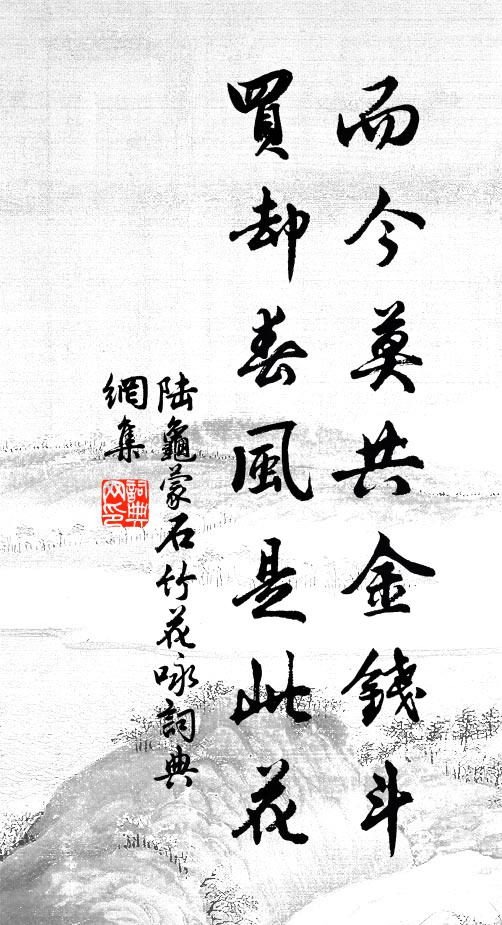 而今莫共金錢斗
買却春風是此花
陸龜蒙石竹花咏詞典
網集
詞典
网印